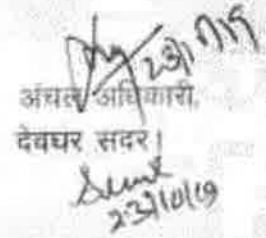 23/10/19
अंचल अधिकारी,
देवघर सदर।
23/10/19